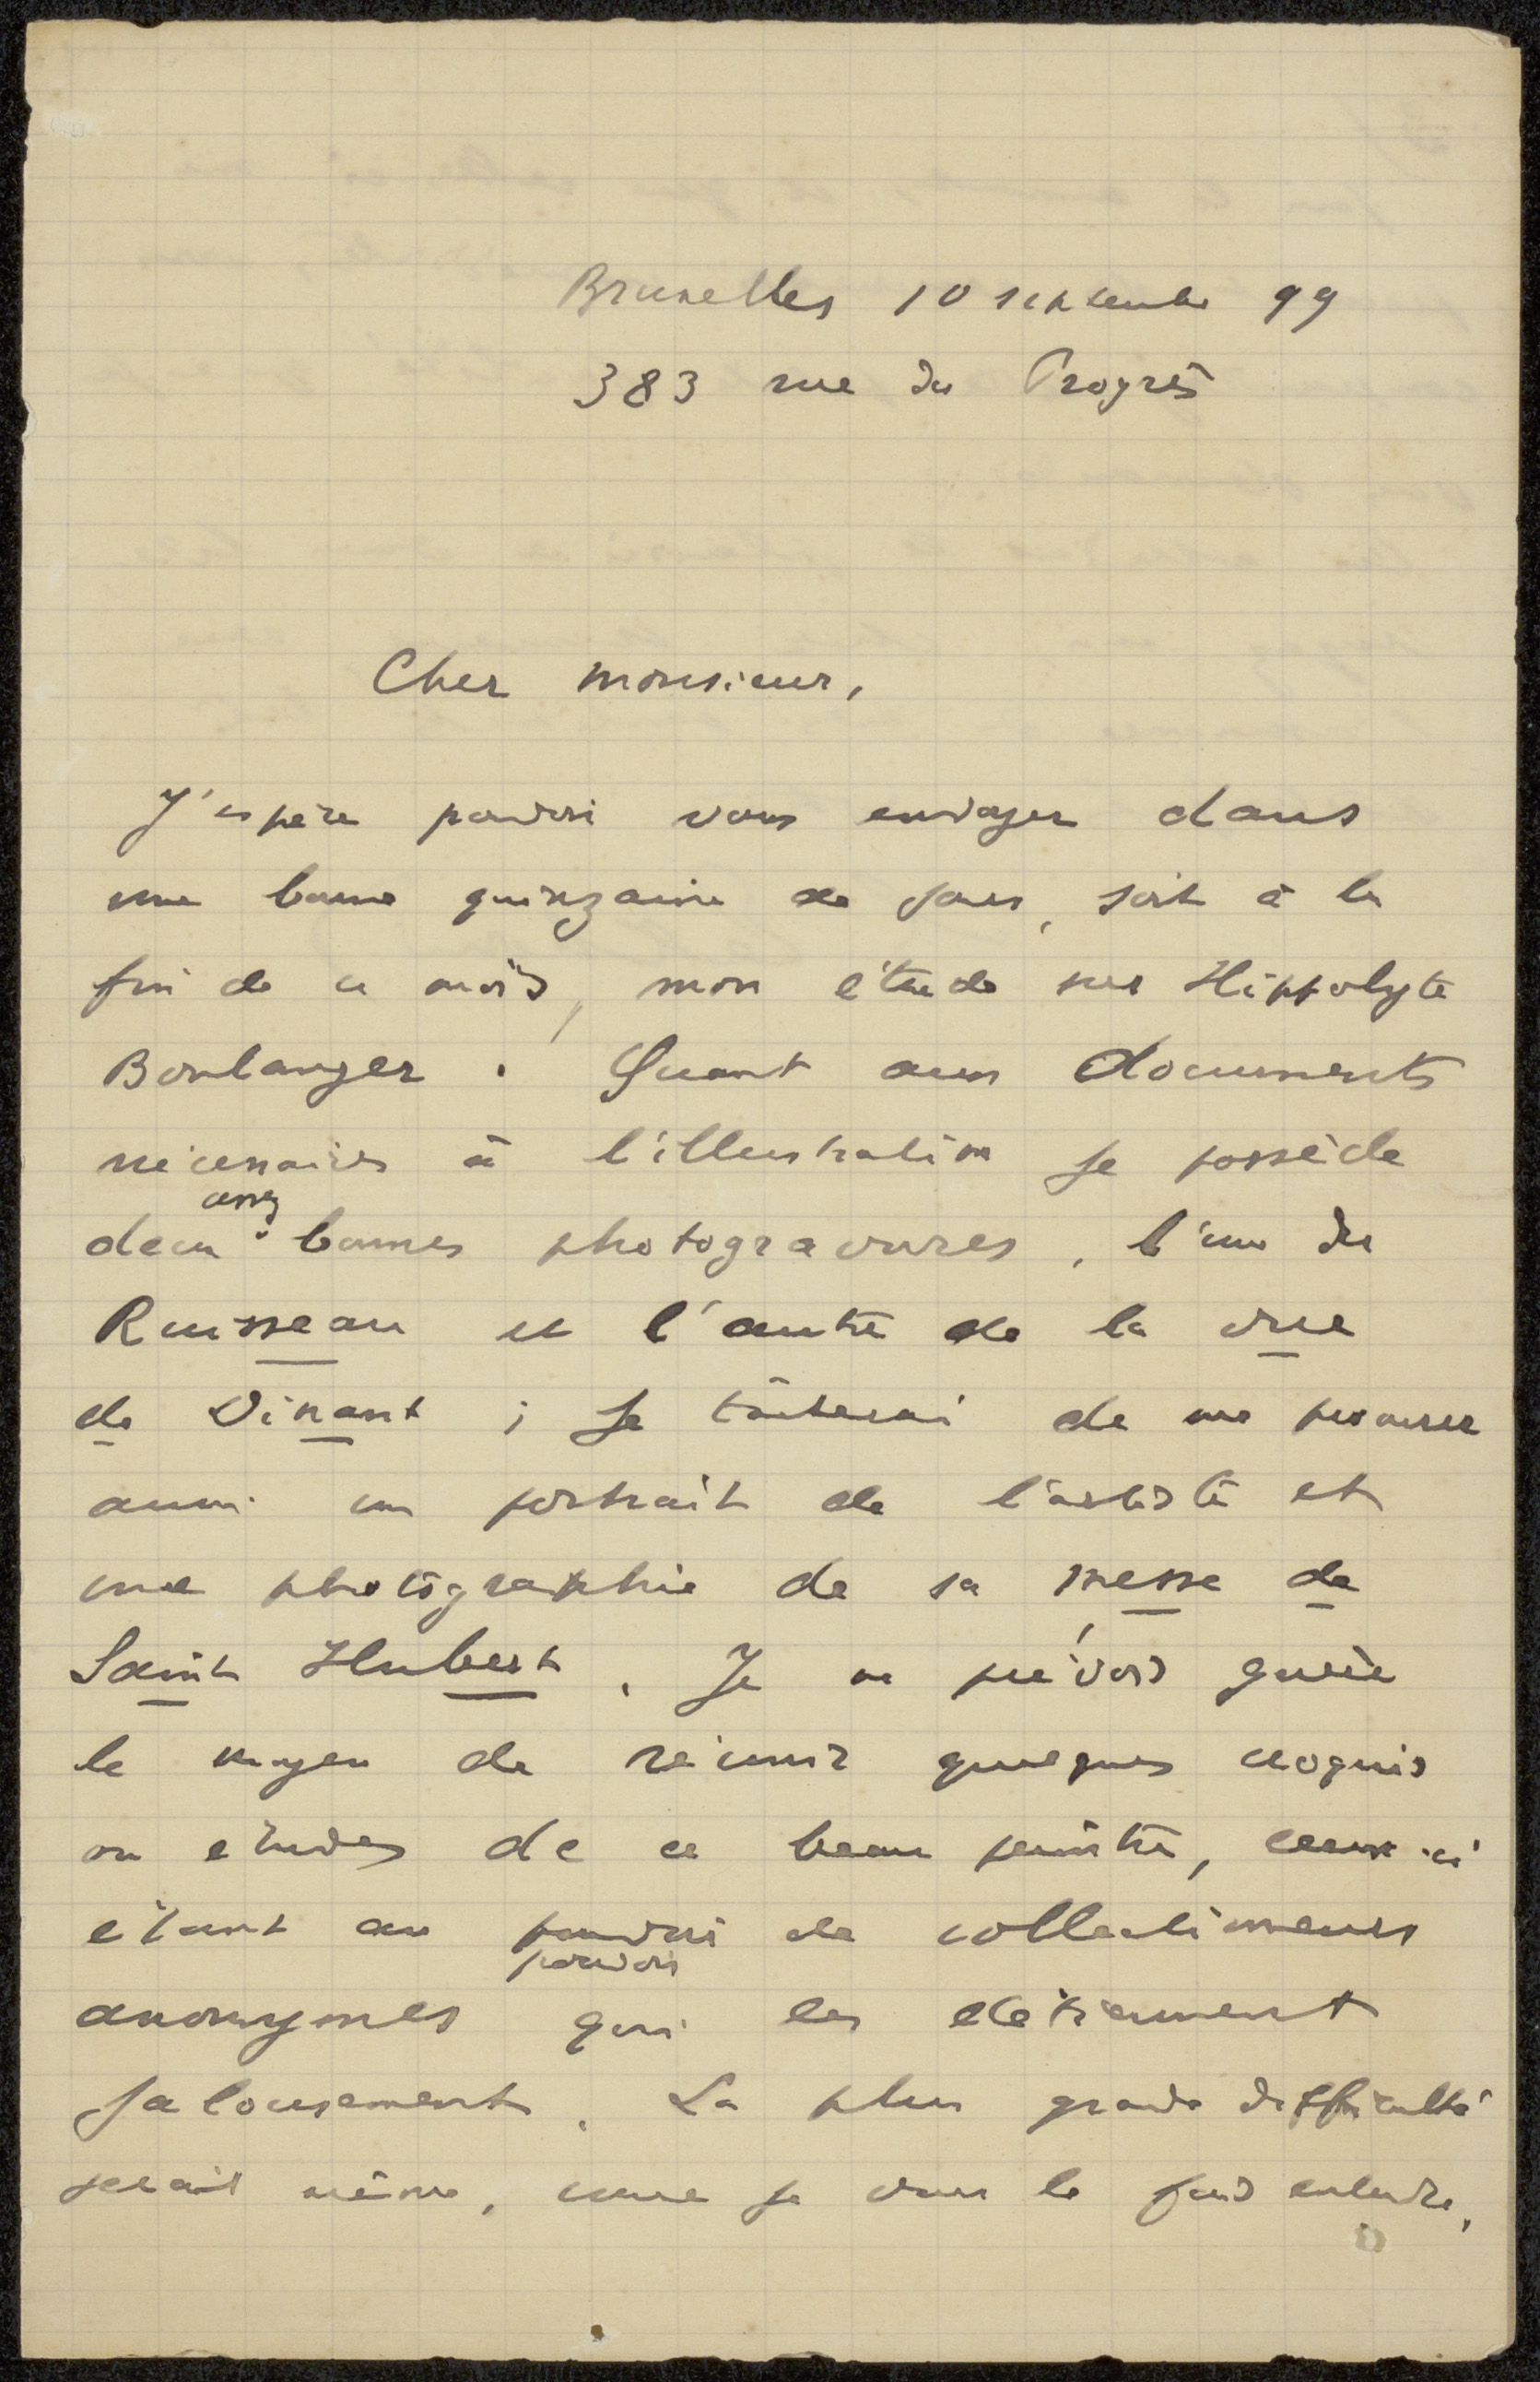 Bruxelles 10 septembre 99
383 rue du Progrès
Cher monsieur,
J'espère pouvoir vous envoyer dans
une bonne quinzaine de jours, soit à la
fin de ce mois, mon étude sur Hippolyte
Boulanger. Quant aux documents
nécessaires à l'illustration je possède
deux assez bonnes photogravures, l'une du
Ruisseau et l'autre de la vue
de Dinant ; je tâcherai de me procurer
aussi un portrait de l'artiste et
une photographie de sa messe de
Saint Hubert. Je ne prévois guère
le moyen de réunir quelques croquis
ou etudes de ce beau peintre, ceux-ci
étant au pouvoir de collectionneurs
pouvoir
anonymes qui les détiennent
jalousement. La plus grande difficulté
serait même, comme je vous le fais entendre,